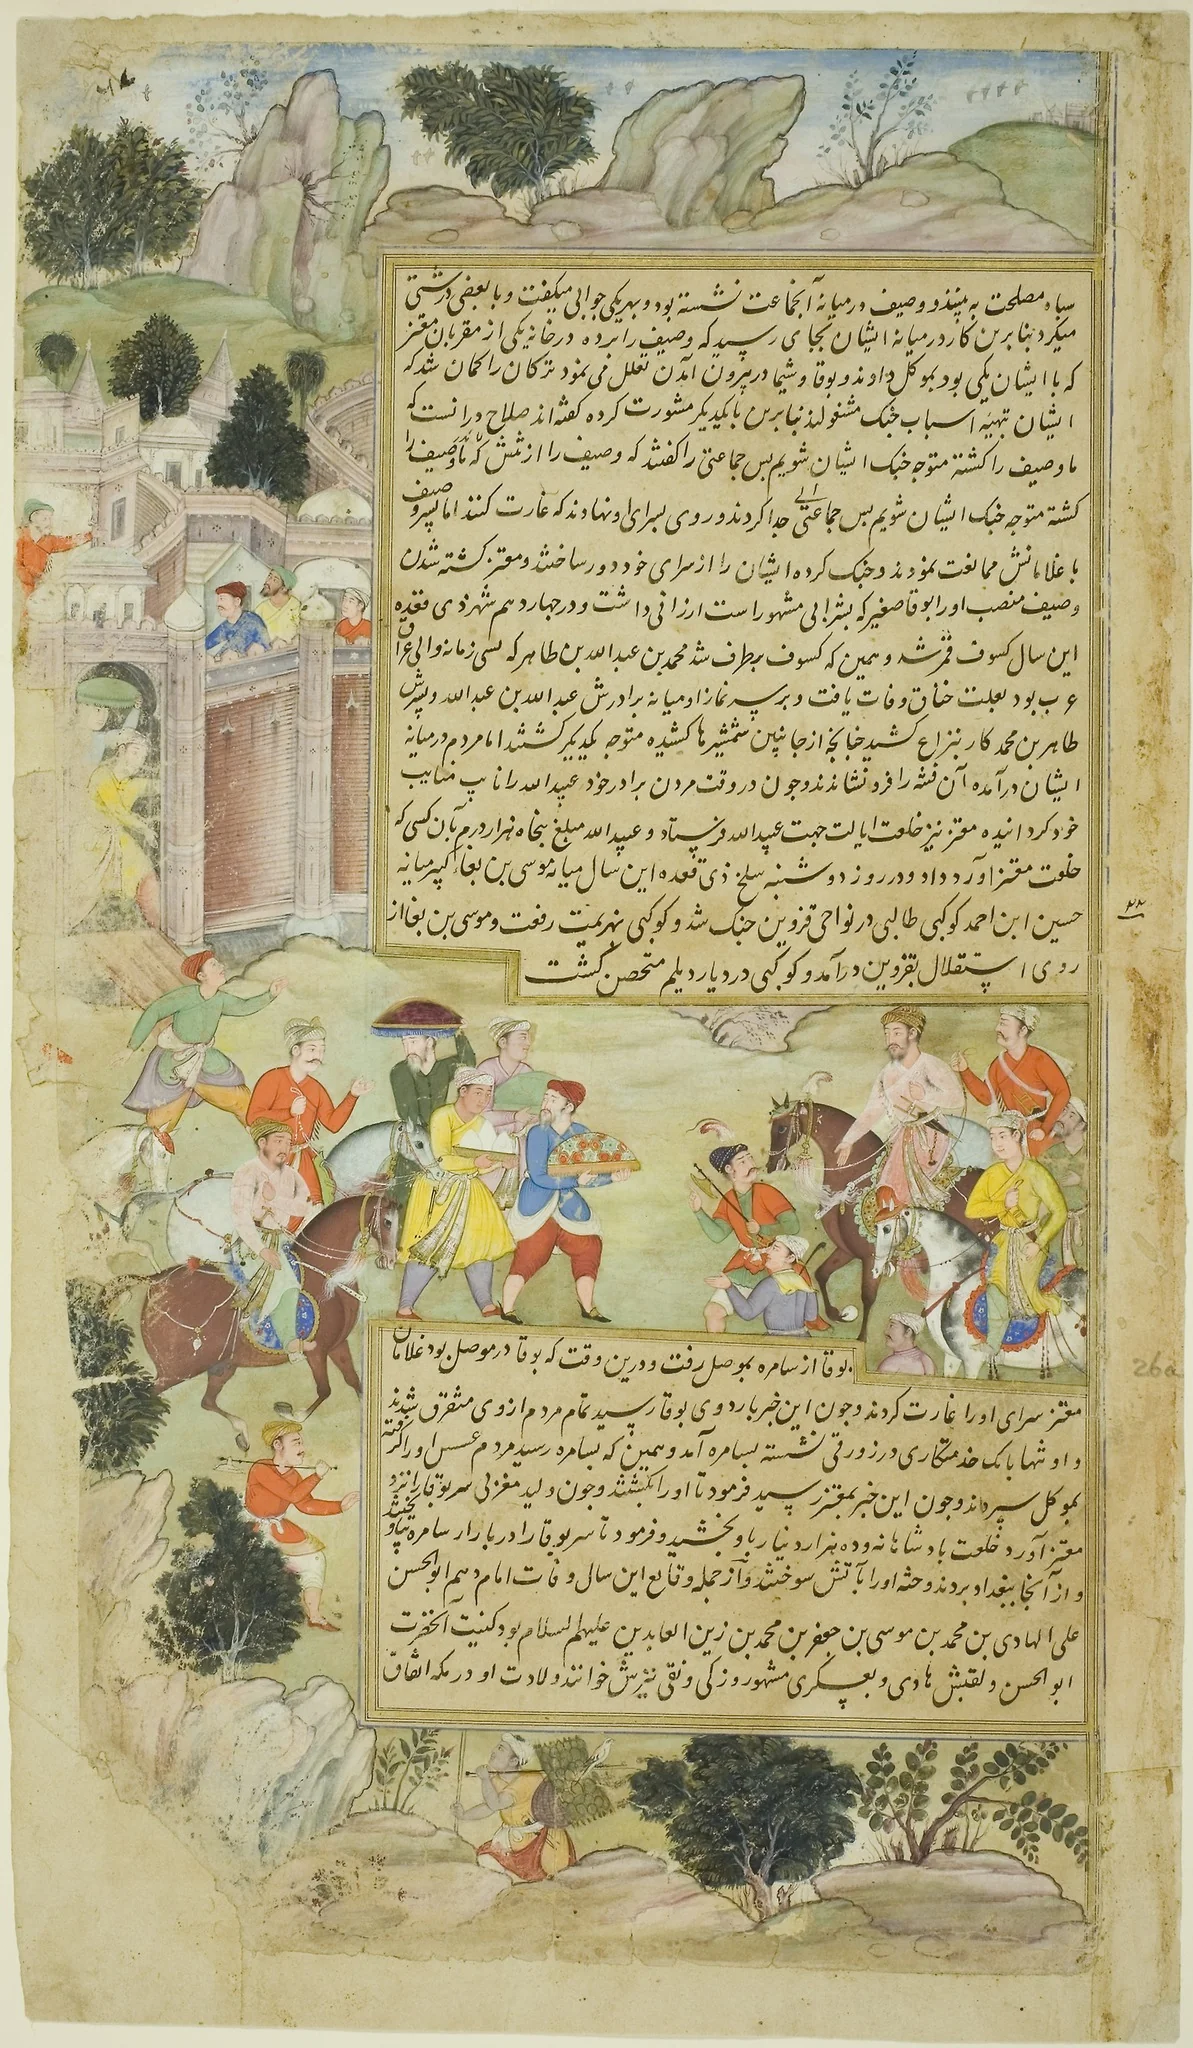 سپاه مصلحت به بینند و وصیف در میانه آنجماعت نشسته بود و بهریکی جوابی میگفت و با بعضی درشتی
میکرد بنا برین کار در میانه ایشان بجای رسید که وصیف را برده در خانه یکی از مقربان معتز
که با ایشان یکی بود بموکل دادند و بوقا و شیما در بیرون آمدن تعلل می نمود ترکان را کمان شد که
ایشان بتهیه اسباب جنک مشغولند بنا برین با یکدیکر مشورت کرده کفتند صلاح در انست که
ما وصیف را کشته متوجه جنک ایشان شویم پس جماعتی را کفتند که وصیف را
کشته متوجه جنک ایشان شویم پس جماعتی جدا کردند و روی بسرای او نهادند که غارت کنند اما پسر وصیف
با غلامانش ممانعت نمودند و جنک کرده ایشان را از سرای خود دور ساختند و معتز کشته شدن
وصیف منصب او را بوقا صغیر که بشرابی مشهور است ارزانی داشت و در چهاردهم شهر ذی قعده
این سال کسوف قمر شد و همین که کسوف بر طرف شد محمد بن عبدالله بن طاهر که بسی زمانه والی عراق
عرب بود بعلت خناق وفات یافت و بر سر نماز او میانه برادرش عبدالله بن عبدالله و پسرش
طاهر بن محمد کار بنزاع کشید چنانچه از جانبین شمشیرها کشیده متوجه یکدیکر کشتند اما مردم در میانه
ایشان در آمده آن فتنه را فرو نشاندند و چون در وقت مردن برادر خود عبیدالله را نایب مناب
خود کردانیده معتز نیز خلعت ایالت جهت عبیدالله فرستاد و عبیدالله مبلغ پنجاه هزار درم بآن کسی که
خلعت معتز آورد داد و در روز دوشنبه سلخ ذی قعده این سال میانه موسی بن بغا کبیر میانه
حسین ابن احمد کوکبی طالبی در نواحی قزوین جنک شد و کوکبی بهزیمت رفعت و موسی بن بغا از
روی استقلال بقزوین در آمد و کوکبی در دیار دیلم متحصن کشت
۲۳
بوقا از سامره بموصل رفت و درین وقت که بوقا در موصل بود غلامان
26a
معتز سرای او را غارت کردند و چون این خبر باردوی بوقا رسید تمام مردم از وی متفرق شدند
و او تنها با یک خدمتکاری در زورقی نشسته بسامره آمد و همین که بسامره رسید مردم عسس او را کرفته
بموکل سپردند و چون این خبر بمعتز رسید فرمود تا او را بکشتند و چون ولید مغربی سر بوقا را نزد
معتز آورد خلعت بادشاهانه و ده هزار دینار باو بخشید و فرمود تا سر بوقا را در بازار سامره بیاویختند
و از آنجا ببغداد بردند و جثه او را بآتش سوختند و از جمله وقایع این سال وفات امام دهم ابوالحسن
علی الهادی بن محمد بن موسی بن جعفر بن محمد بن زین العابدین علیهم السلام بود کنیت آنحضرت
ابوالحسن و لقبش هادی و بعسکری مشهور و زکی و نقی نیزش خوانند ولادت او در مکه اتفاق